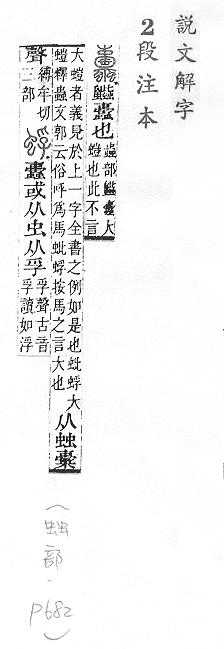 説文解字
2段注本
也 蟲部 大
螘也此不言
大螘者義見於上一字全書之例如是也蚍蜉大
螘釋蟲文郭云俗呼爲馬蚍蜉按馬之言大也
从䖵橐
聲 縛牟切
三部
或从虫从孚 孚聲古音
孚讀如浮
(䖵部·P682)